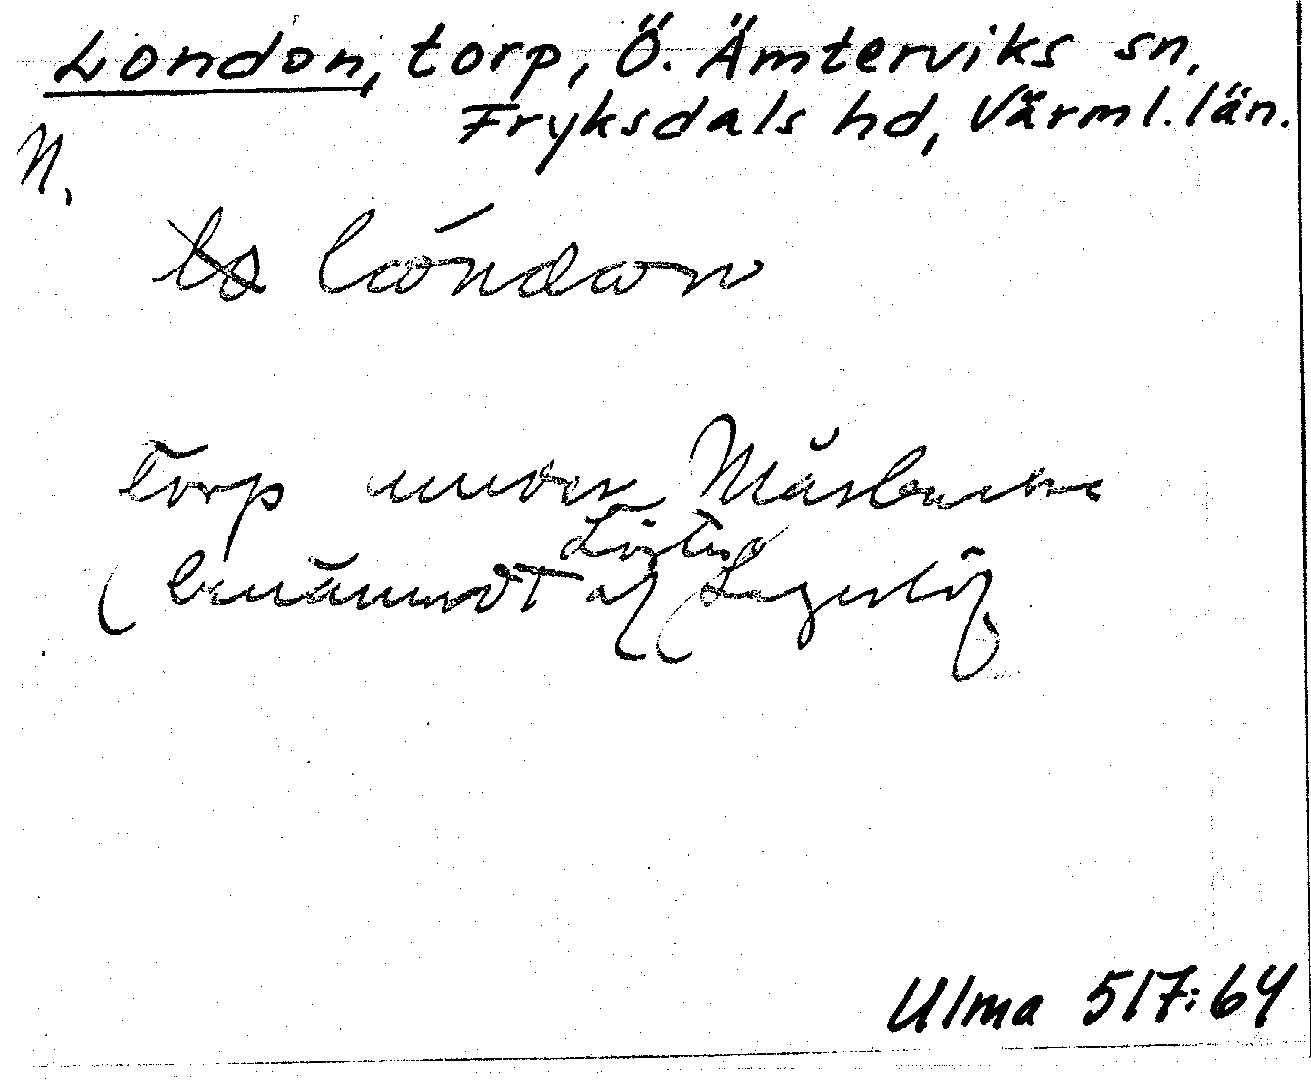 London, torp, Ö. Ämterviks sn,
Fryksdals hd, Värml. län.
N.
Torp under Mårbacka
(benämndt af Löjtn. Lagerlöf
Ulma 517:64